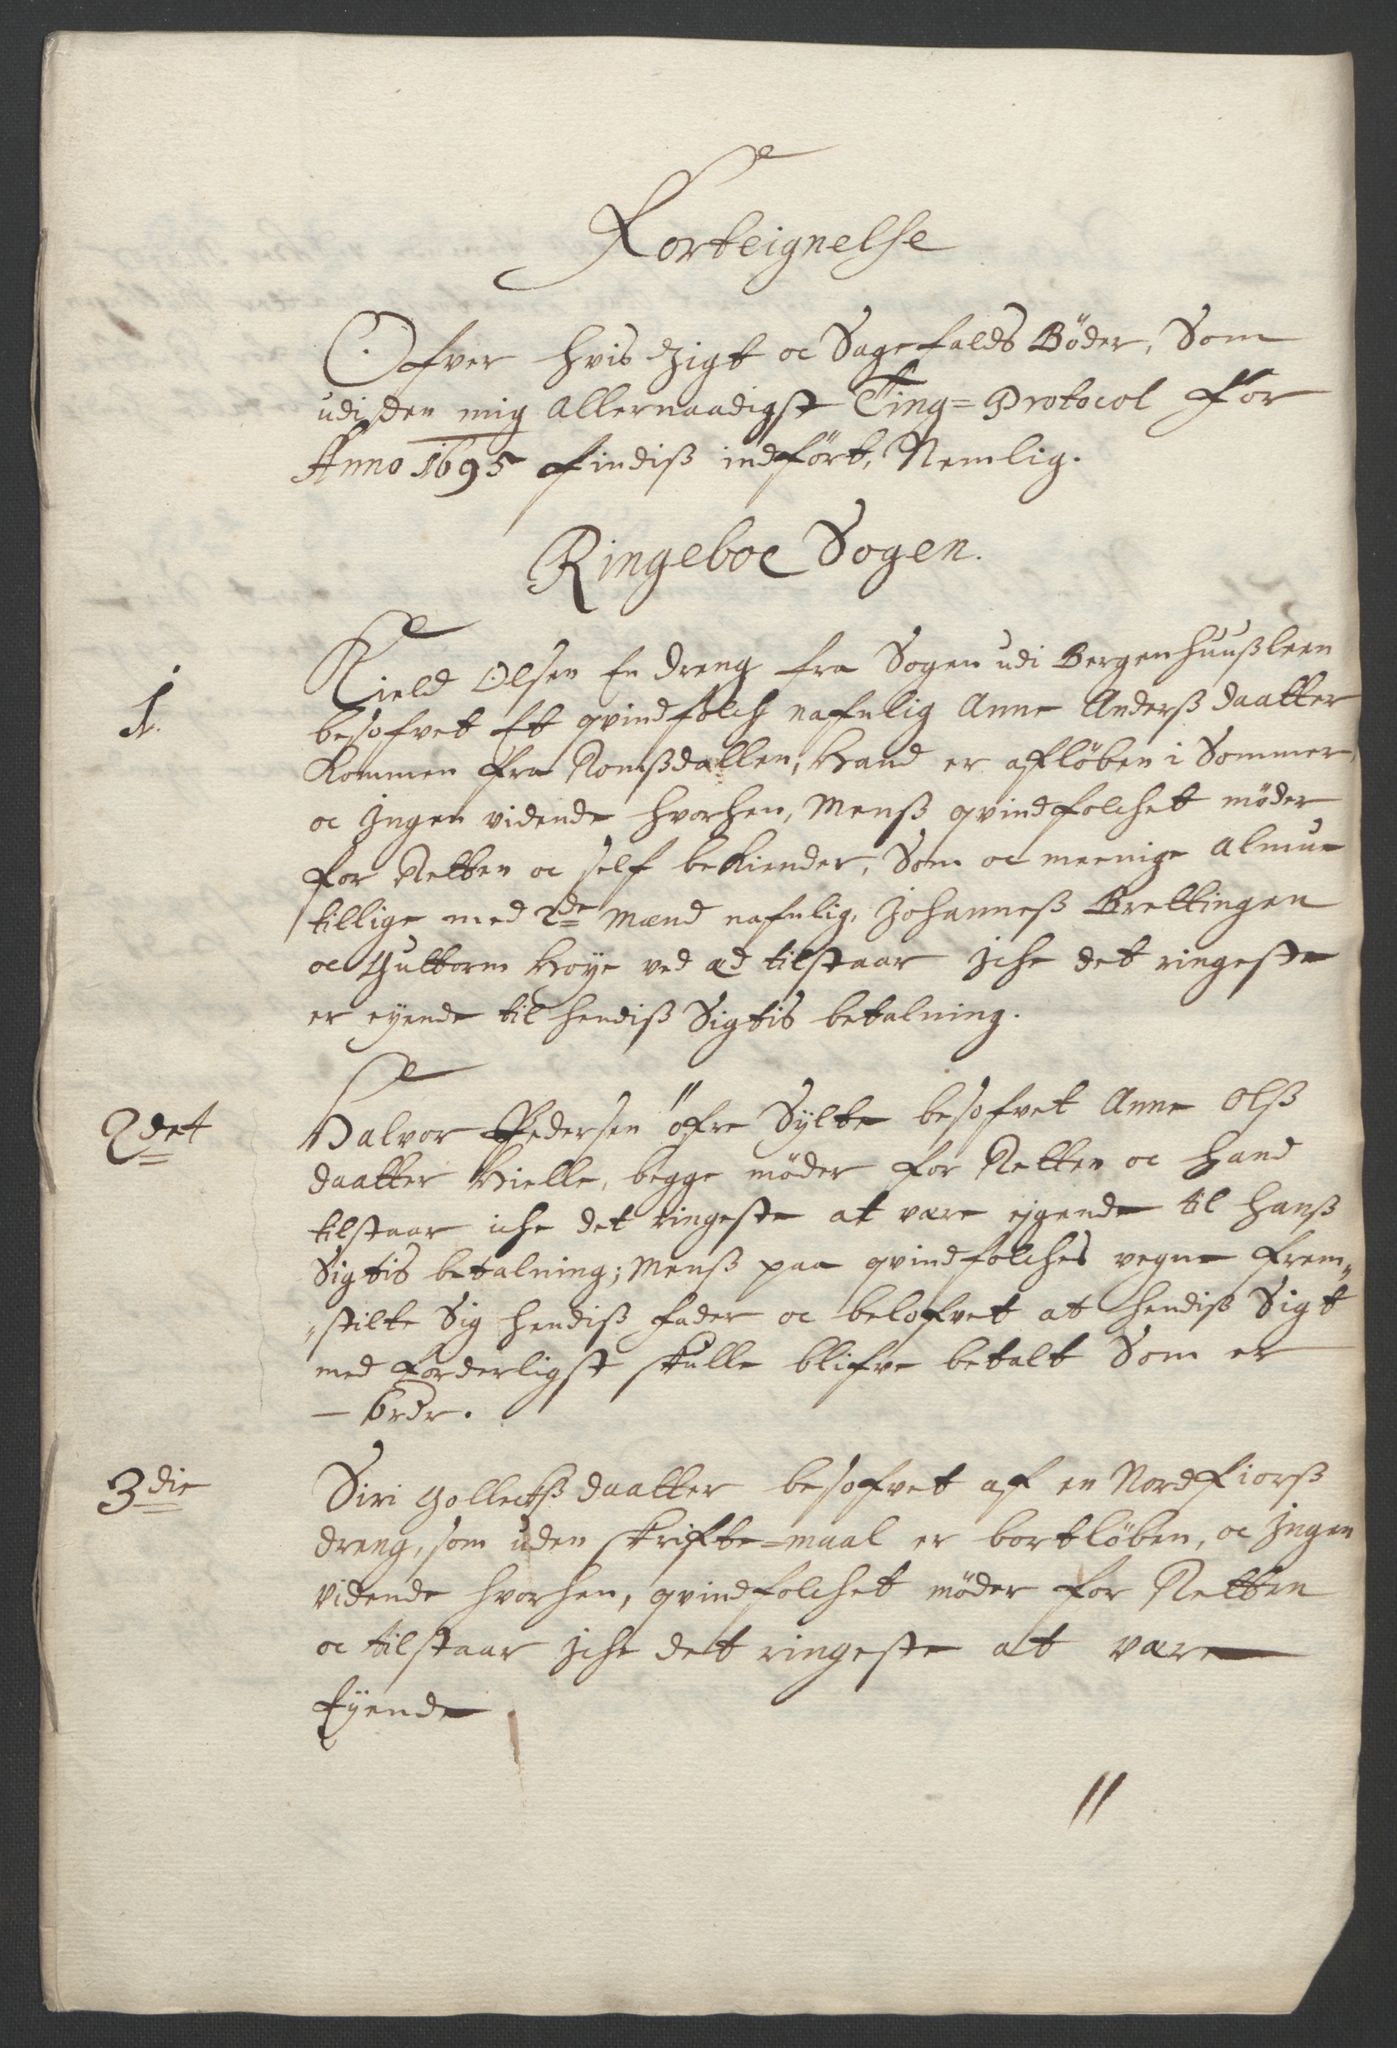 Forteignelse
Ofver hvis Zigt oc Sagefalds Bøder, Som
udi den mig Allernaadigst Ting=Protocol for
Anno 1695 findiß indført, Nemlig.
Ringeboe Sogen.
1.
Kield Olsen En dreng fra Sogen udi Bergenhuußleen
besofvet Et qvindfolch nafnlig Anne Anderß daatter
kommen fra Romßdallen, Hand er afløben i Sommer,
oc Jngen vidende hvorhen, Menß qvindfolchet møder
for Retten oc self bekiender, Som oc meenige Almue
tillige med 2de Mænd nafnlig, Johanneß Brettingen
oc Guttorm Høye ved ad tilstaar Jche det ringeste
er eyende til hendiß Sigtis betalning.
2det
Halvor Pedersen öfre Sylte besofvet Anne Olß
daatter Hielle, begge møder for Retten oc hand
tilstaar iche det ringeste at være eygende til hanß
Sigtis betalning; Menß paa qvindfolches vegne frem„
„stilte Sig hendiß fader oc belofvet at hendiß Sigt
med forderligst skulle blifve betalt Som er
— 6rdr.
3die
Siri Gollechß daatter besofvet af en Nordfiorß
dreng, som uden skrifte=maal er bortløben, oc Jngen
vidende hvorhen, qvindfolchet møder for Retten
oc tilstaar Jche det ringeste at være
Eyende